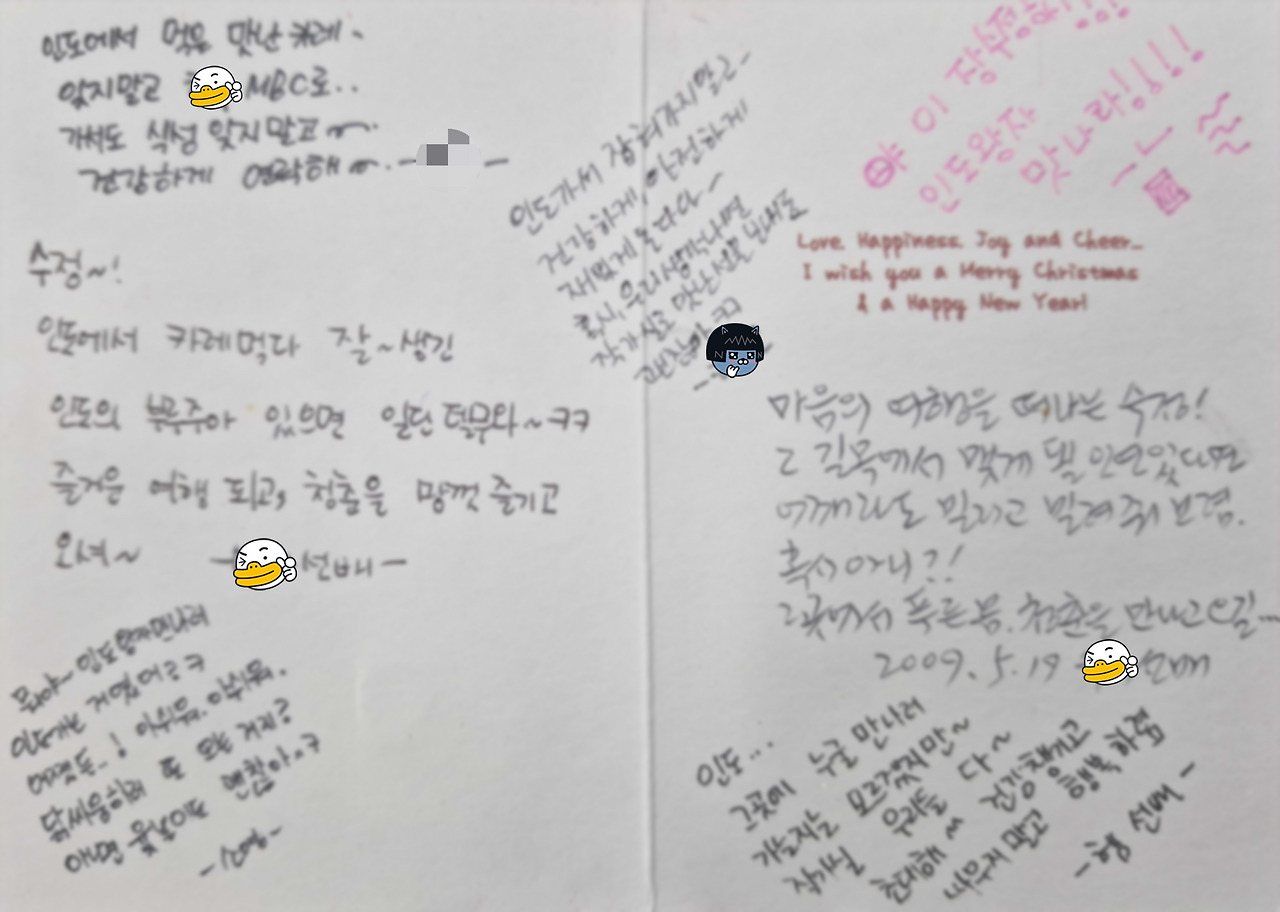 인도에서 먹은 맛난 카레~
잊지말고 MBC로..
가서도 식성 잊지말고~.
건강하게 연락해~.
수정~!
인도에서 카레먹다 잘~생긴
인도의 있으면 일단 텔무와~ㅋㅋ
즐거운 여행 되고, 청춘을 맘껏 즐기고
오셔~ 선배-
뭐야~ 인도왕자만나러
인도가는 거였어ㅋㅋ
어쨌든..! 아쉬워. 아쉬워.
닭싸움하러 또 오는 거지?
괜찮아ㅋㅋ
인도가서 말고-
건강하게, 안전하게
재밌게 놀다와~
혹시, 우리 생각나면
작가실로 맛난 선물 보내도
괜찮아 ㅋㅋ
야 이 장수정아!!!
인도왕자
맛나라!!!!
Love, Happiness, Joy and Cheer...
I wish you a Merry Christmas
& a Happy New Year!
마음의 여행을 떠나는 수정!
그 길목에서 맺게 될 인연있다면
어깨라도 빌리고 빌려줘 보렴.
혹시 아니?!
그곳에서 푸르름, 청춘을 만나고 올길...
2009. 5. 19 선배
인도...
그곳에 누굴 만나러
가는지는 모르겠지만~
작가실 우리들 다~
초대해~ 건강 챙기고
싸우지 말고 행복하렴
-형 선배-